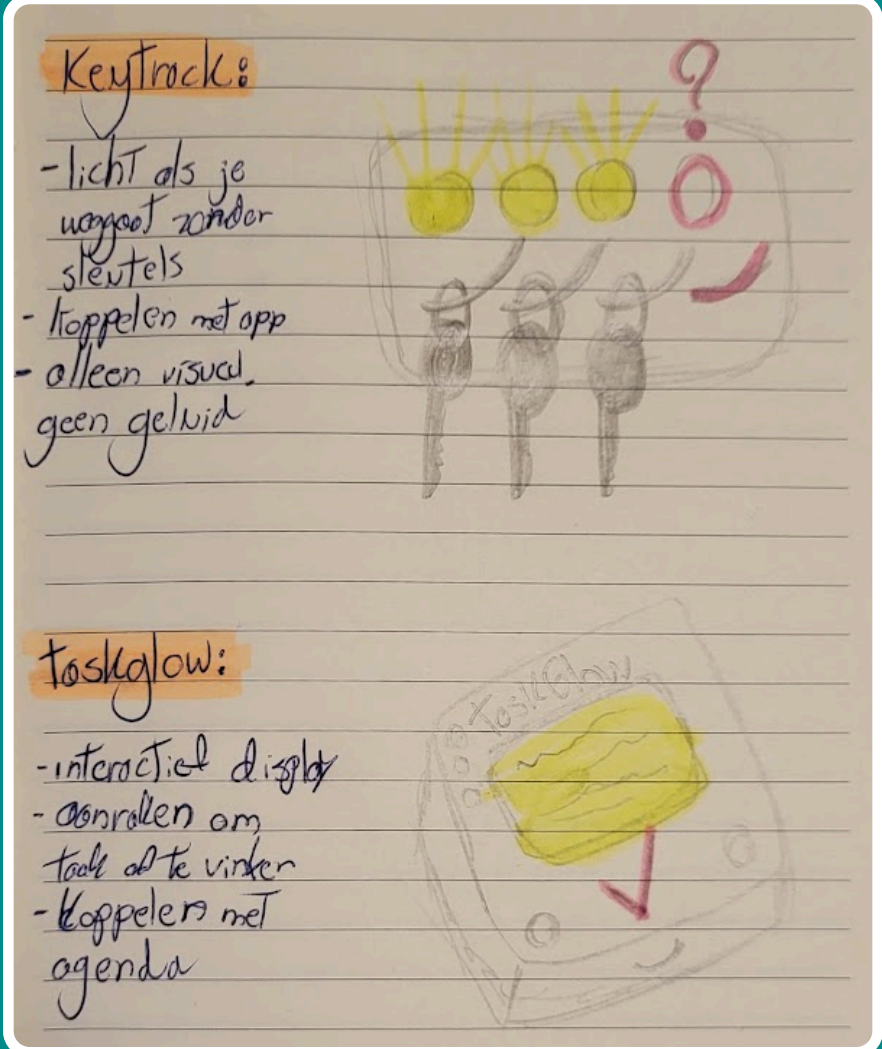 Keytrack:
- licht als je
weggaat zonder
sleutels
- koppelen met app
- alleen visual.
geen geluid
?
taskglow:
TaskGlow
- interactief display
- aanraken om
taak af te vinken
- koppelen met
agenda